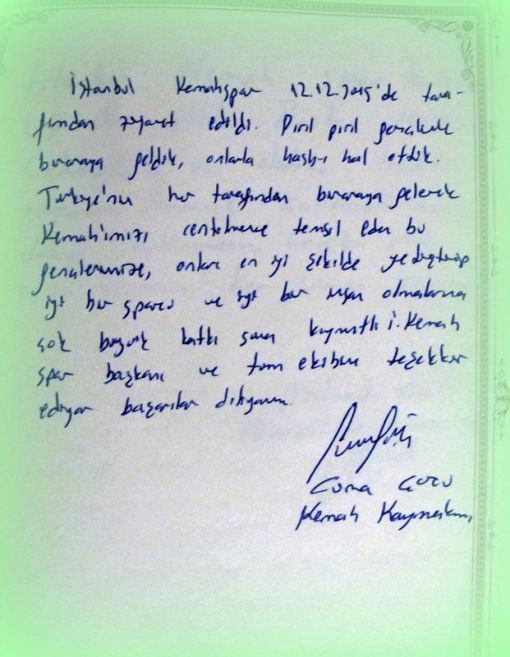 İstanbul Kemahspor 12.12.2015'de tara-
fından ziyaret edildi. Pırıl pırıl gençlerle
biraraya geldik, onlarla hasb-ı hal ettik.
Türkiye'nin her tarafından biraraya gelerek
Kemah'ımızı centilmence temsil eden bu
gençlerimize, onları en iyi şekilde yetiştirip
iyi bir sporcu ve iyi bir insan olmalarına
çok büyük katkı sunan kıymetli İ.Kemah
spor başkanı ve tüm ekibine teşekkür
ediyor başarılar diliyorum.
Cuma
Kemah Kaymakamı